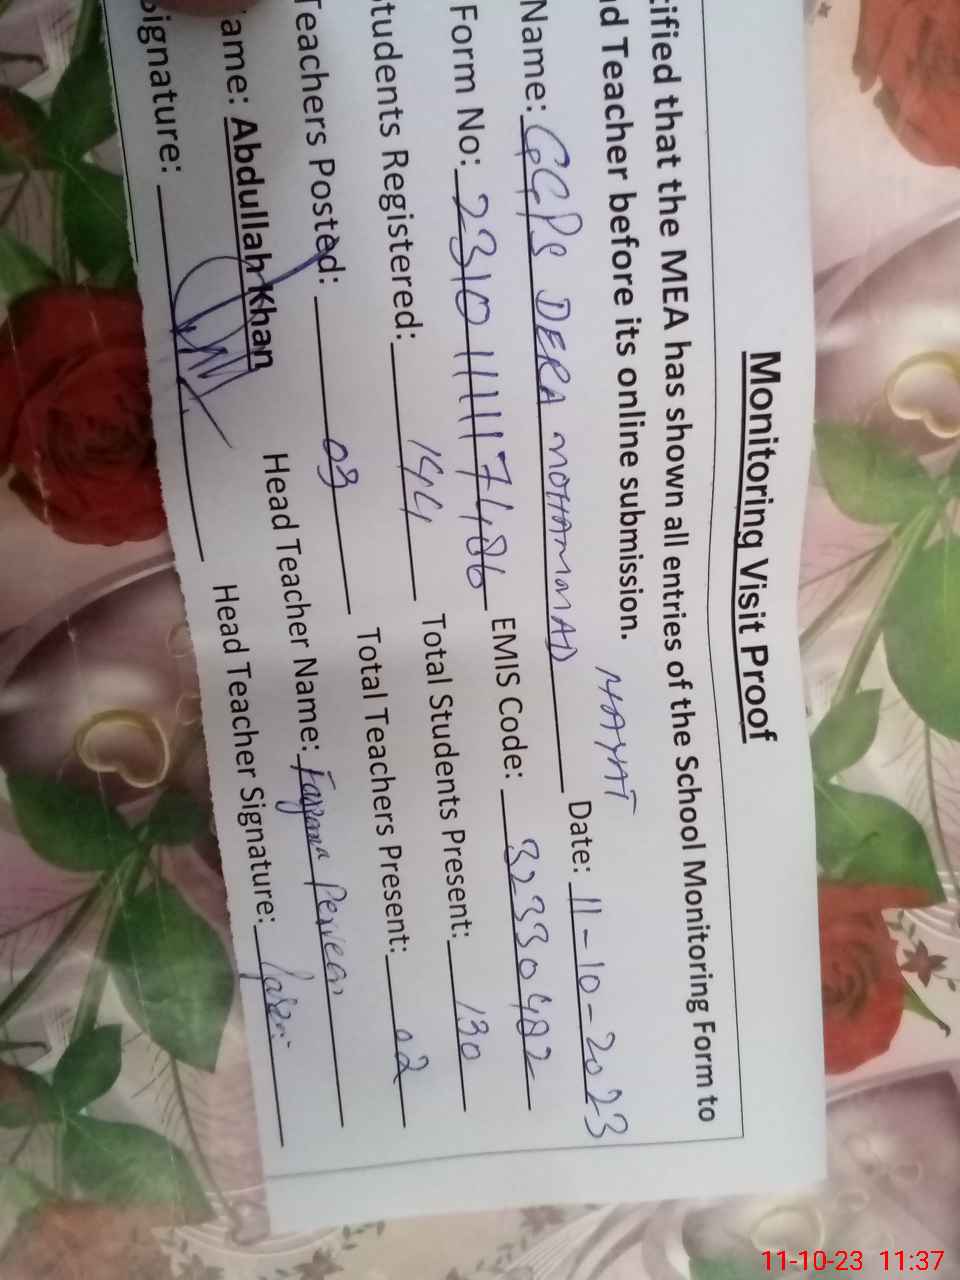 Monitoring Visit Proof
tified that the MEA has shown all entries of the School Monitoring Form to
ad Teacher before its online submission.
Name: GGPS DERA MOHAMMAD HAYAT Date: 11-10-2023
Form No: 2310111117486 EMIS Code: 32330482
tudents Registered: 144 Total Students Present: 130
Teachers Posted: 03 Total Teachers Present: 02
ame: Abdullah Khan Head Teacher Name: Farzana Perveen
Signature: Head Teacher Signature:
11-10-23 11:37